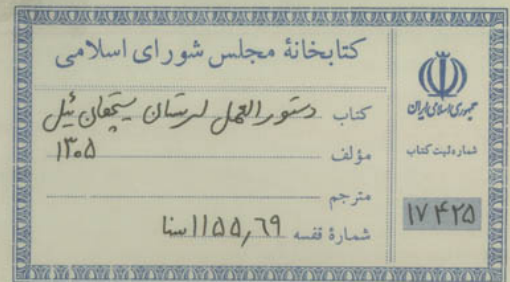 کتابخانهٔ مجلس شورای اسلامی
کتاب دستورالعمل لرستان سیچقان ئیل
مؤلف ۱۳۰۵
مترجم
شمارهٔ قفسه ۱۱۵۵٫۶۹ سنا
جمهوری اسلامی ایران
شماره ثبت کتاب
۱۷۴۲۵